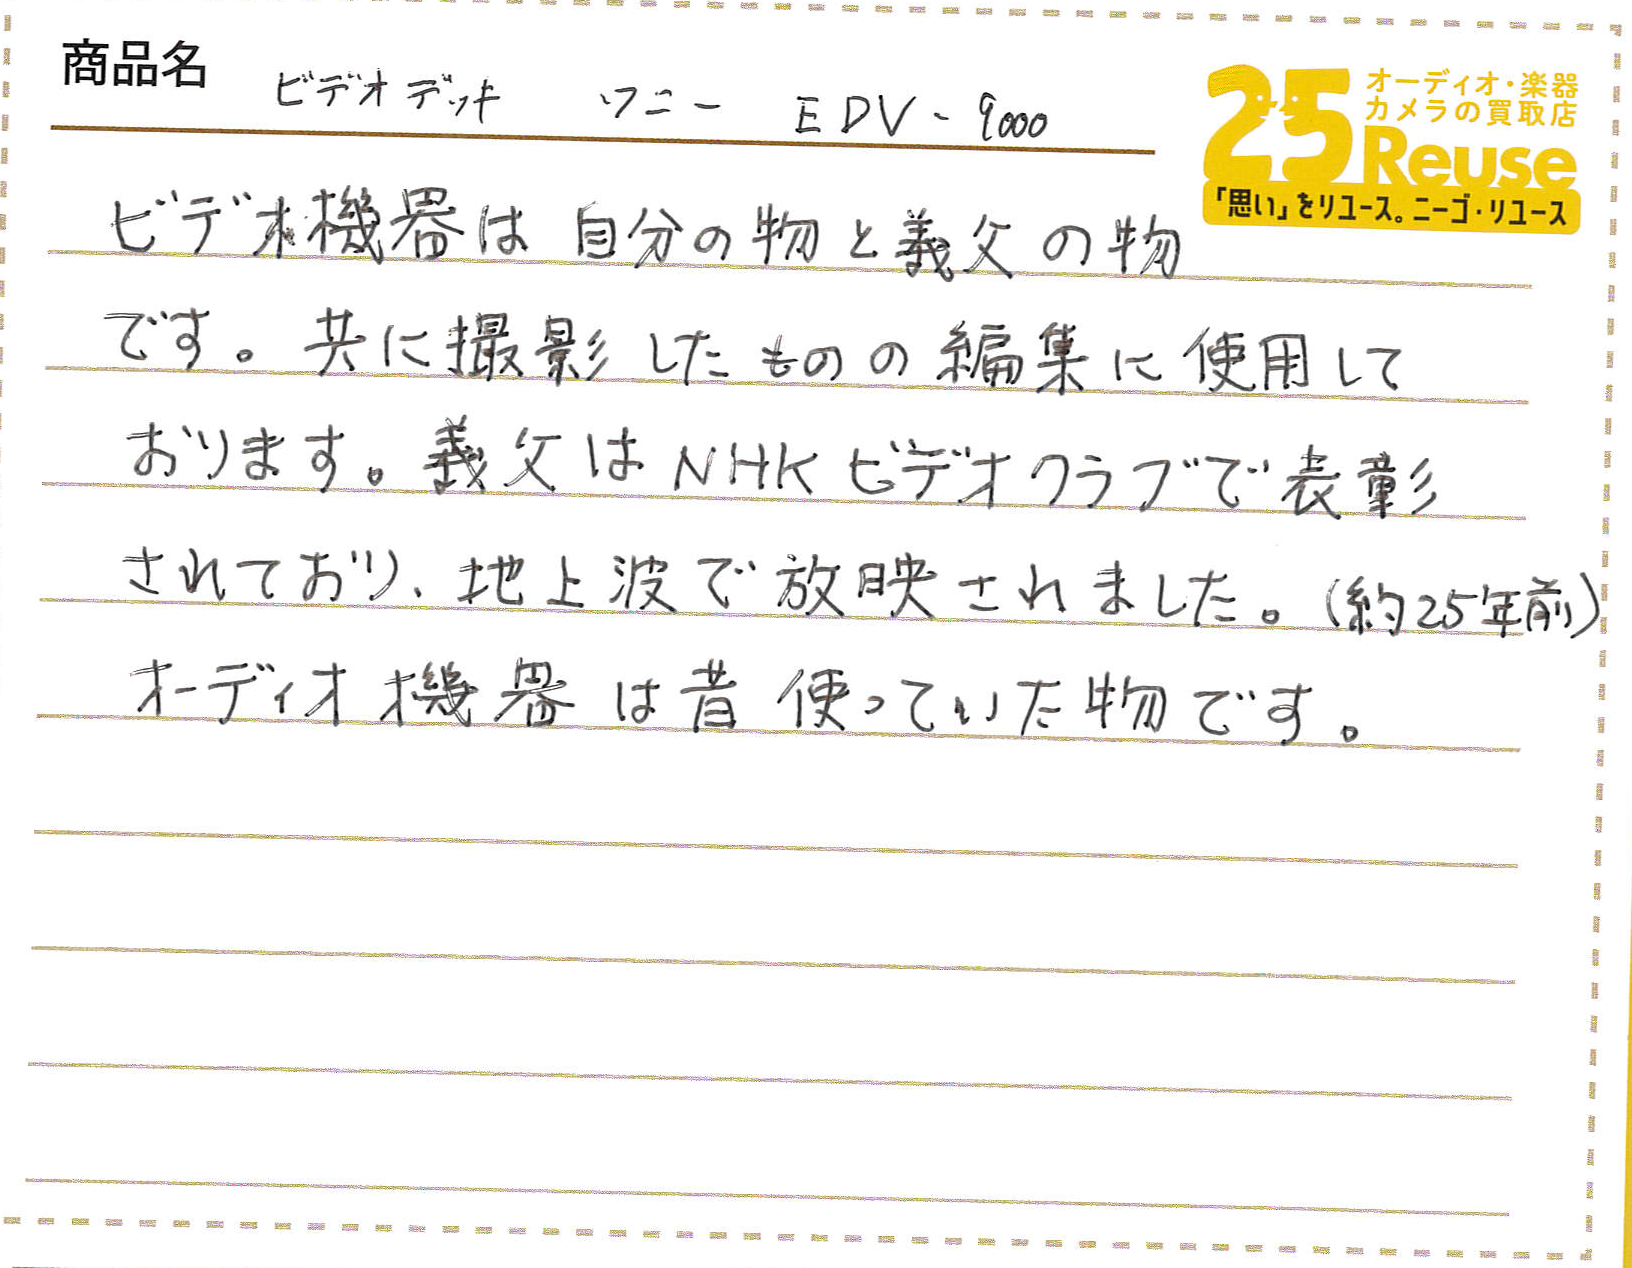 商品名 ビデオデッキ ソニー EDV-9000
オーディオ・楽器
カメラの買取店
25 Reuse
「思い」をリユース。ニーゴ・リユース
ビデオ機器は自分の物と義父の物
です。共に撮影したものの編集に使用して
おります。義父はNHKビデオクラブで表彰
されており、地上波で放映されました。(約25年前)
オーディオ機器は昔使っていた物です。